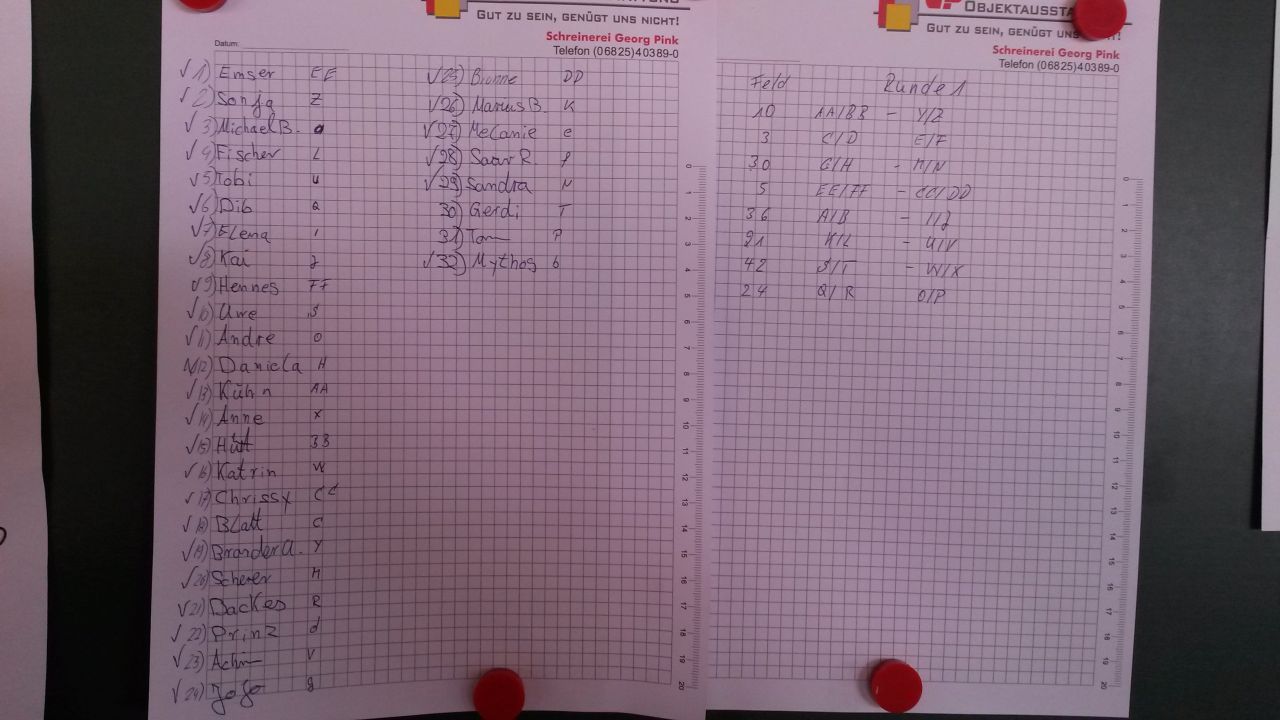 GUT ZU SEIN, GENÜGT UNS NICHT!
Schreinerei Georg Pink
Telefon (06825)40389-0
Datum:
√ 1) Emser EE
√ 2) Sonja Z
√ 3) Michael B. a
√ 4) Fischer L
√ 5) Tobi u
√ 6) Dib a
√ 7) Elena I
√ 8) Kai J
√ 9) Hennes FF
√ 10) Uwe S
√ 11) Andre O
√ 12) Daniela H
√ 13) Kühn AA
√ 14) Anne X
√ 15) Hütt BB
√ 16) Katrin W
√ 17) Chrissy CC
√ 18) Blatt C
√ 19) Brander A. Y
√ 20) Scherer M
√ 21) Dackes R
√ 22) Prinz d
√ 23) Achim V
√ 24) JoJo g
√ 25) DD
√ 26) Marius B. K
√ 27) Melanie e
√ 28) Saar R. f
√ 29) Sandra N
30) Gerdi T
31) Tom P
√ 32) Mythos b
0
1
2
3
4
5
6
7
8
9
10
11
12
13
14
15
16
17
18
19
20
OBJEKTAUSSTA
GUT ZU SEIN, GENÜGT UNS !
Schreinerei Georg Pink
Telefon (06825)40389-0
Feld Runde 1
10 AA/BB - Y/Z
3 C/D E/F
30 G/H - M/N
5 EE/FF - CC/DD
36 A/B - I/J
21 K/L - U/V
42 S/T - W/X
24 Q/R O/P
0
1
2
3
4
5
6
7
8
9
10
11
12
13
14
15
16
17
18
19
20